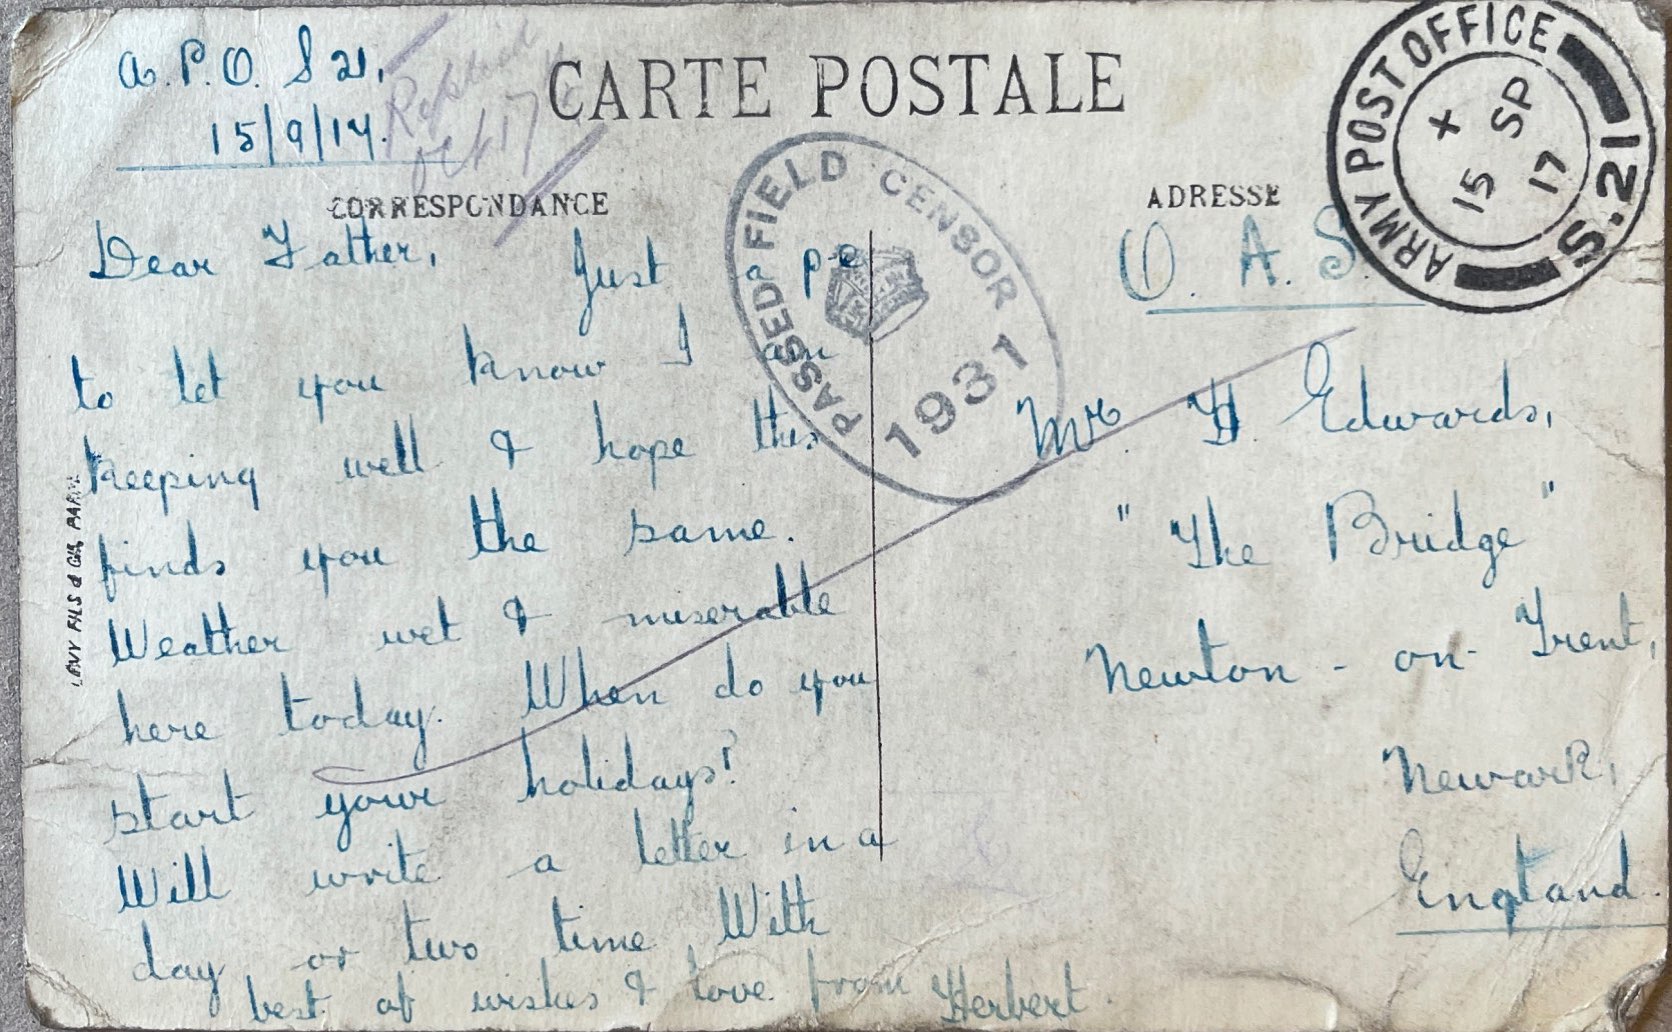 A.P.O. S 21.
15/9/17.
Replied
Oct 17
CARTE POSTALE
CORRESPONDANCE
ADRESSE
PASSED FIELD CENSOR
1931
ARMY POST OFFICE
S.21
X
15 SP
17
Dear Father,
Just a p.c
to let you know I am
keeping well & hope this
finds you the same.
Weather wet & miserable
here today. When do you
start your holidays?
Will write a letter in a
day or two time. With
best of wishes & love from Herbert.
O. A. S.
Mr. H. Edwards,
"The Bridge"
Newton - on - Trent,
Newark,
England.
LEVY FILS & Cie, PARIS